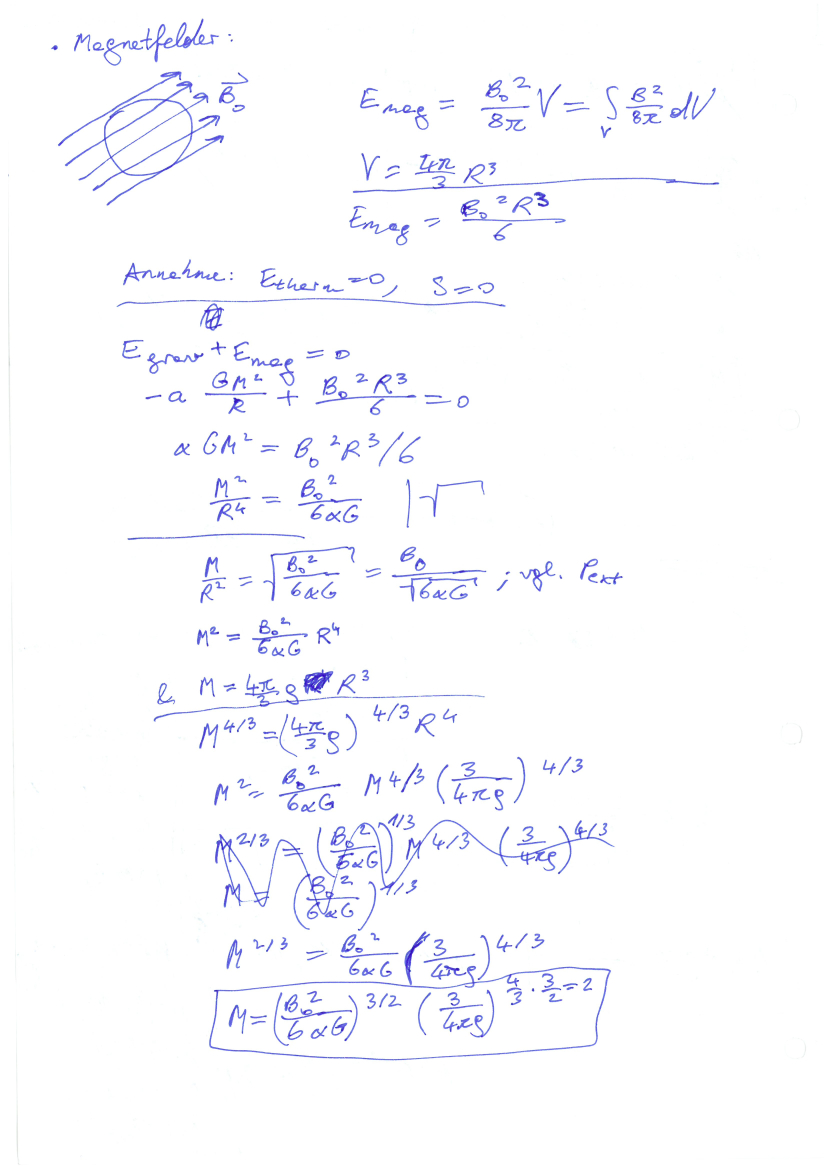 • Magnetfelder:
B⃗₀
E_mag = B₀²/8π V = ∫_V B²/8π dV
V = 4π/3 R³
E_mag = B₀²R³/6
Annehme: E_therm = 0, S = 0
E_grav + E_mag = 0
-a GM²/R + B₀²R³/6 = 0
α GM² = B₀²R³/6
M²/R⁴ = B₀²/6αG |√
M/R² = √(B₀²/6αG) = B₀/√(6αG) ; vgl. P_ext
M² = B₀²/6αG R⁴
& M = 4π/3 ρ R³
M^4/3 = (4π/3 ρ)^4/3 R⁴
M² = B₀²/6αG M^4/3 (3/4πρ)^4/3
M^2/3 = (B₀²/6αG)^1/3 M^4/3 (3/4πρ)^4/3
M = (B₀²/6αG)^1/3
M^2/3 = B₀²/6αG (3/4πρ)^4/3
M = (B₀²/6αG)^3/2 (3/4πρ)^4/3·3/2=2